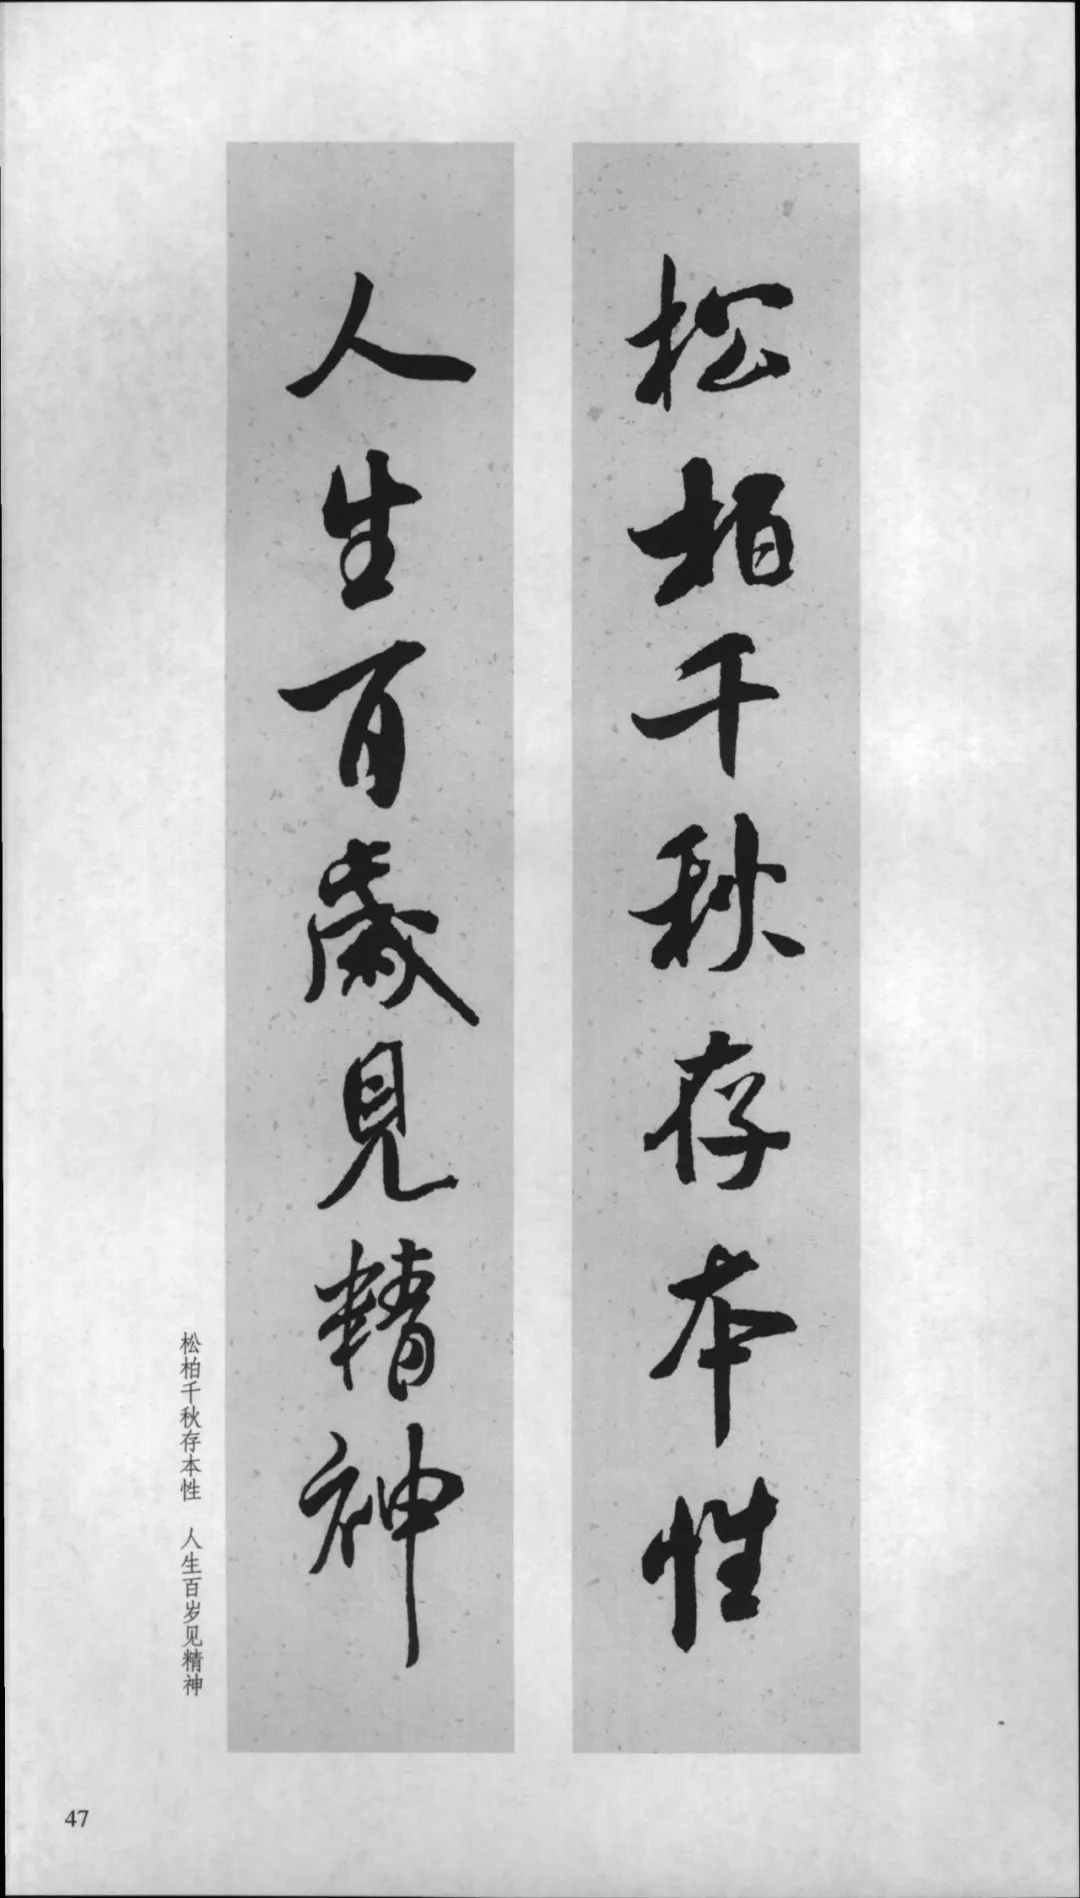 松柏千秋存本性
人生百歲見精神
松柏千秋存本性 人生百岁见精神
47